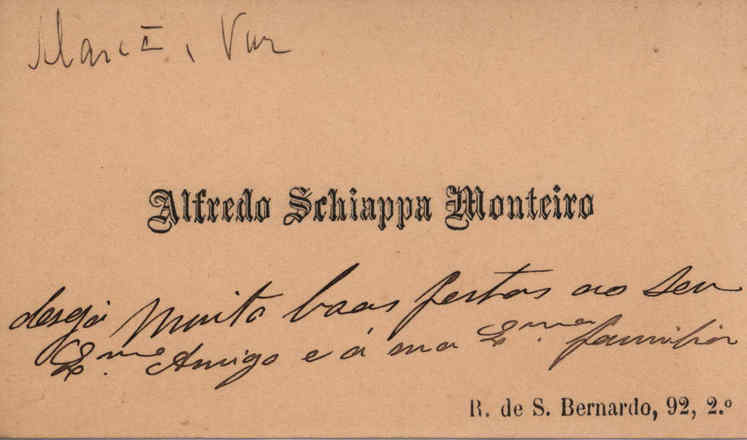 Alfredo Schiappa Monteiro
deseja muito boas festas ao seu
Ex.mo Amigo e á sua Ex.ma familia
R. de S. Bernardo, 92, 2.º